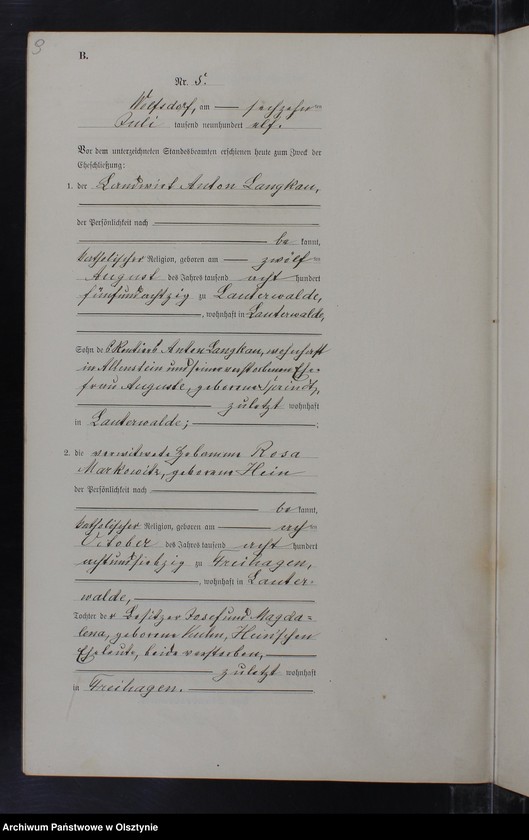 9
B.
Nr. 5.
Wolfsdorf, am sechzehnten
Juli tausend neunhundert elf.
Vor dem unterzeichneten Standesbeamten erschienen heute zum Zweck der
Eheschließung:
1. der Landwirt Anton Langkau,
der Persönlichkeit nach
be kannt,
katholischer Religion, geboren am zwölften
August des Jahres tausend acht hundert
fünfundachtzig zu Lauterwalde,
, wohnhaft in Lauterwalde,
Sohn des Rentiers Anton Langkau, wohnhaft
in Allenstein und seiner verstorbenen Ehe-
frau Auguste, geborene
zuletzt wohnhaft
in Lauterwalde; ;
2. die verwitwete Hebamme Rosa
Markowitz, geborene Hein
der Persönlichkeit nach
be kannt,
katholischer Religion, geboren am
October des Jahres tausend acht hundert
achtundsiebzig zu Freihagen,
, wohnhaft in Lauter-
walde,
Tochter der Besitzer Josef und Magda-
lena, geborene Kuhn, Hein'schen
Eheleute, beide verstorben,
zuletzt wohnhaft
in Freihagen.
Archiwum Państwowe w Olsztynie